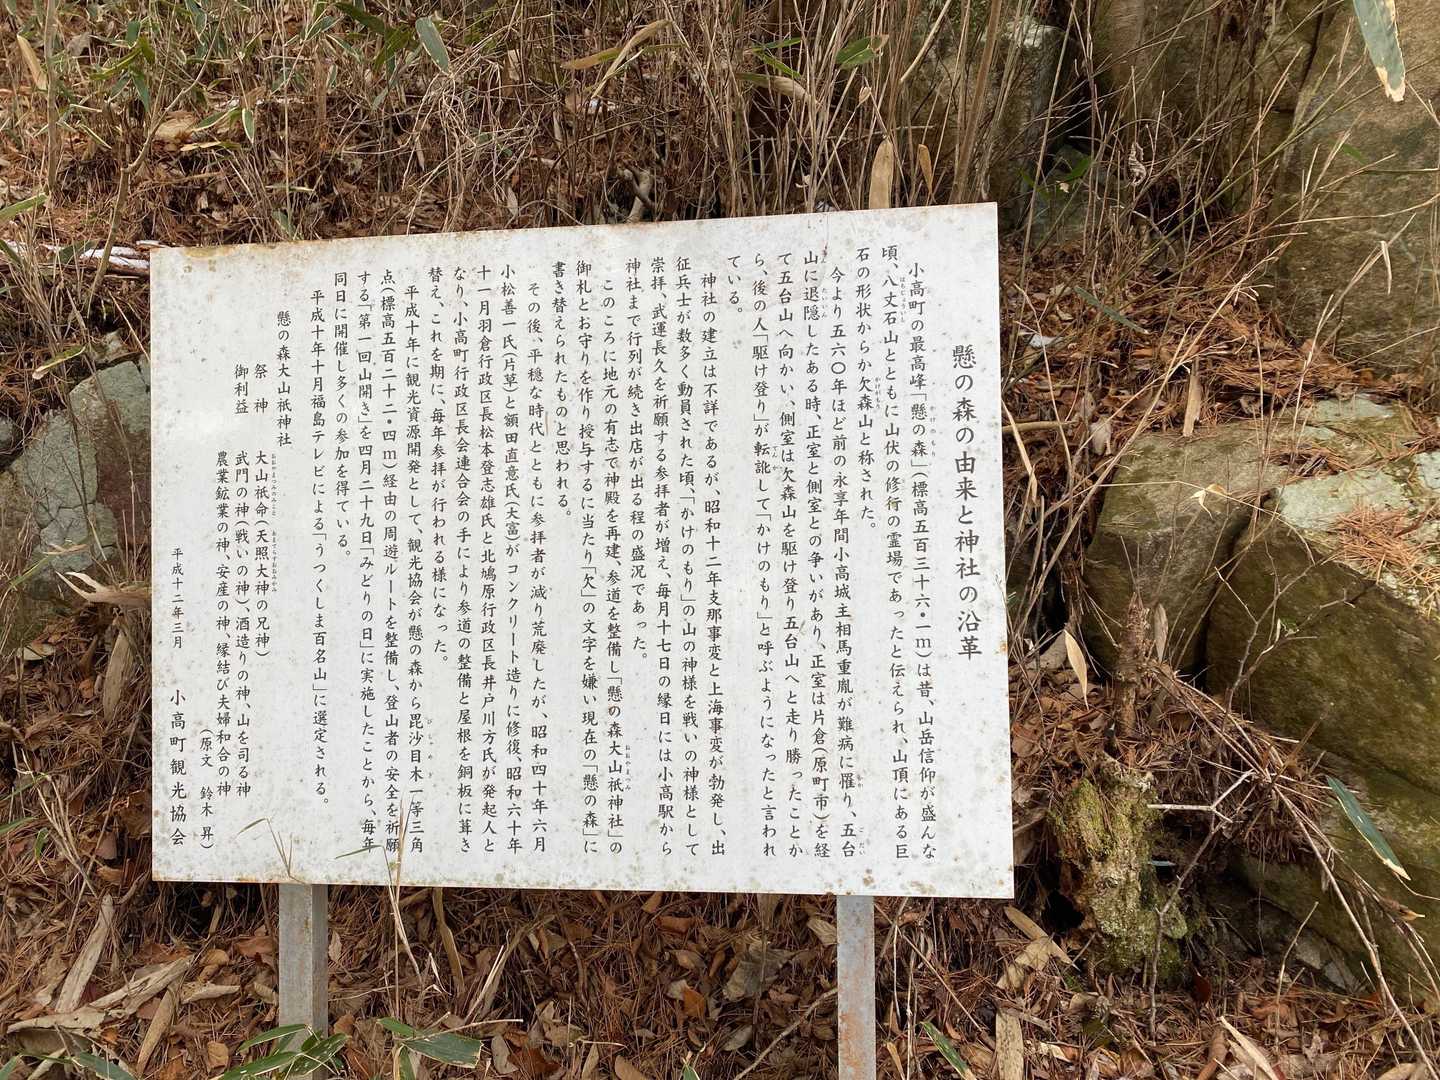 懸の森の由来と神社の沿革
小高町の最高峰「懸の森」(標高五百三十六・一m)は昔、山岳信仰が盛んな
頃、八丈石山とともに山伏の修行の霊場であったと伝えられ、山頂にある巨
石の形状からか欠森山と称された。
今より五六〇年ほど前の永享年間小高城主相馬重胤が難病に罹り、五台
山に退隠したある時、正室と側室との争いがあり、正室は片倉(原町市)を経
て五台山へ向かい、側室は欠森山を駆け登り五台山へと走り勝ったことか
ら、後の人「駆け登り」が転訛して「かけのもり」と呼ぶようになったと言われ
ている。
神社の建立は不詳であるが、昭和十二年支那事変と上海事変が勃発し、出
征兵士が数多く動員された頃、「かけのもり」の山の神様を戦いの神様として
崇拝、武運長久を祈願する参拝者が増え、毎月十七日の縁日には小高駅から
神社まで行列が続き出店が出る程の盛況であった。
このころに地元の有志で神殿を再建、参道を整備し「懸の森大山祇神社」の
御札とお守りを作り授与するに当たり「欠」の文字を嫌い現在の「懸の森」に
書き替えられたものと思われる。
その後、平穏な時代とともに参拝者が減り荒廃したが、昭和四十年六月
小松善一氏(片草)と額田直意氏(大富)がコンクリート造りに修復、昭和六十年
十一月羽倉行政区長松本登志雄氏と北鳩原行政区長井戸川方氏が発起人と
なり、小高町行政区長会連合会の手により参道の整備と屋根を銅板に葺き
替え、これを期に、毎年参拝が行われる様になった。
平成十年に観光資源開発として、観光協会が懸の森から毘沙目木一等三角
点(標高五百二十二・四m)経由の周遊ルートを整備し、登山者の安全を祈願
する「第一回山開き」を四月二十九日「みどりの日」に実施したことから、毎年
同日に開催し多くの参加を得ている。
平成十年十月福島テレビによる「うつくしま百名山」に選定される。
懸の森大山祇神社
祭神 大山祇命(天照大神の兄神)
御利益 武門の神(戦いの神)、酒造りの神、山を司る神
農業鉱業の神、安産の神、縁結び夫婦和合の神
(原文 鈴木昇)
平成十二年三月 小高町観光協会